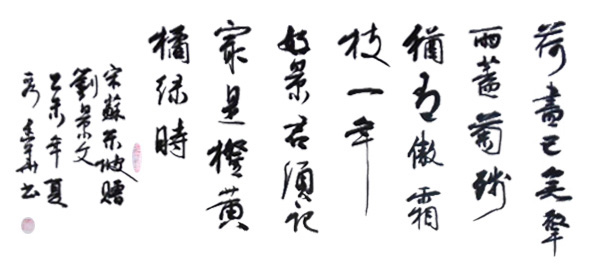 荷盡已無擎
雨蓋菊殘
猶有傲霜
枝一年
好景君須記
最是橙黃
橘綠時
宋蘇東坡贈
劉景文
乙未年夏
书